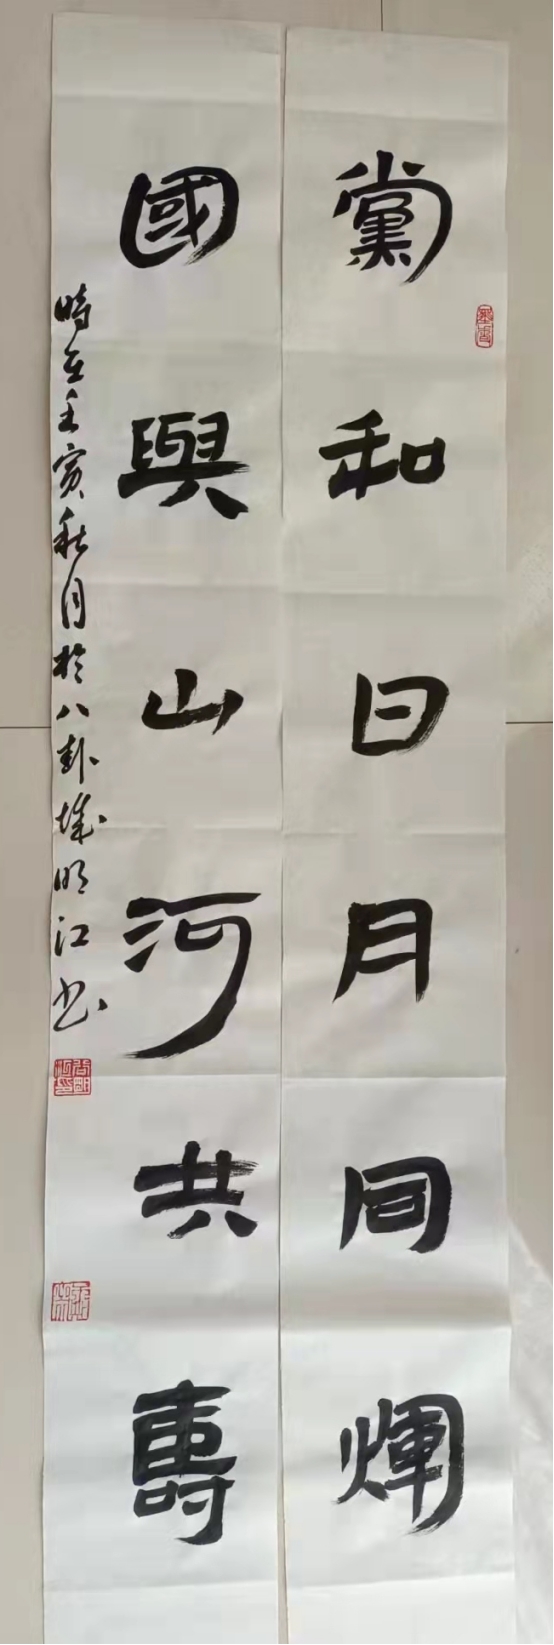 黨和日月同煇
國與山河共壽
時在壬寅秋月於八卦城明江书